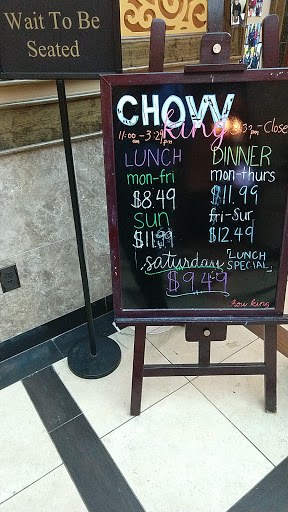 Wait To Be
Seated
CHOW
king
11:00 am-3:29pm
3:30pm-Close
LUNCH
mon-fri
$8.49
Sun
$11.99
DINNER
mon-thurs
$11.99
fri-Sur
$12.49
saturday
「LUNCH
SPECIAL」
$9.49